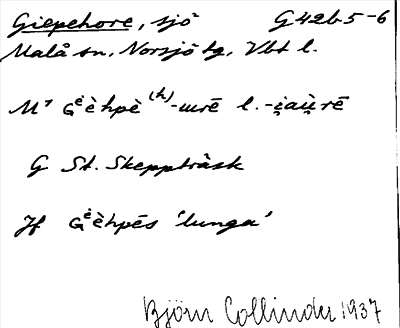 Giepehore, sjö G42b5-6
Malå sn, Norsjö tg, Vbt l.
M¹ Gēèhpè⁽ʰ⁾-ɯrē l. -i̯au̯rē
G St. Skeppträsk
Jf Gēèhpēs 'lunga'
Björn Collinder 1937